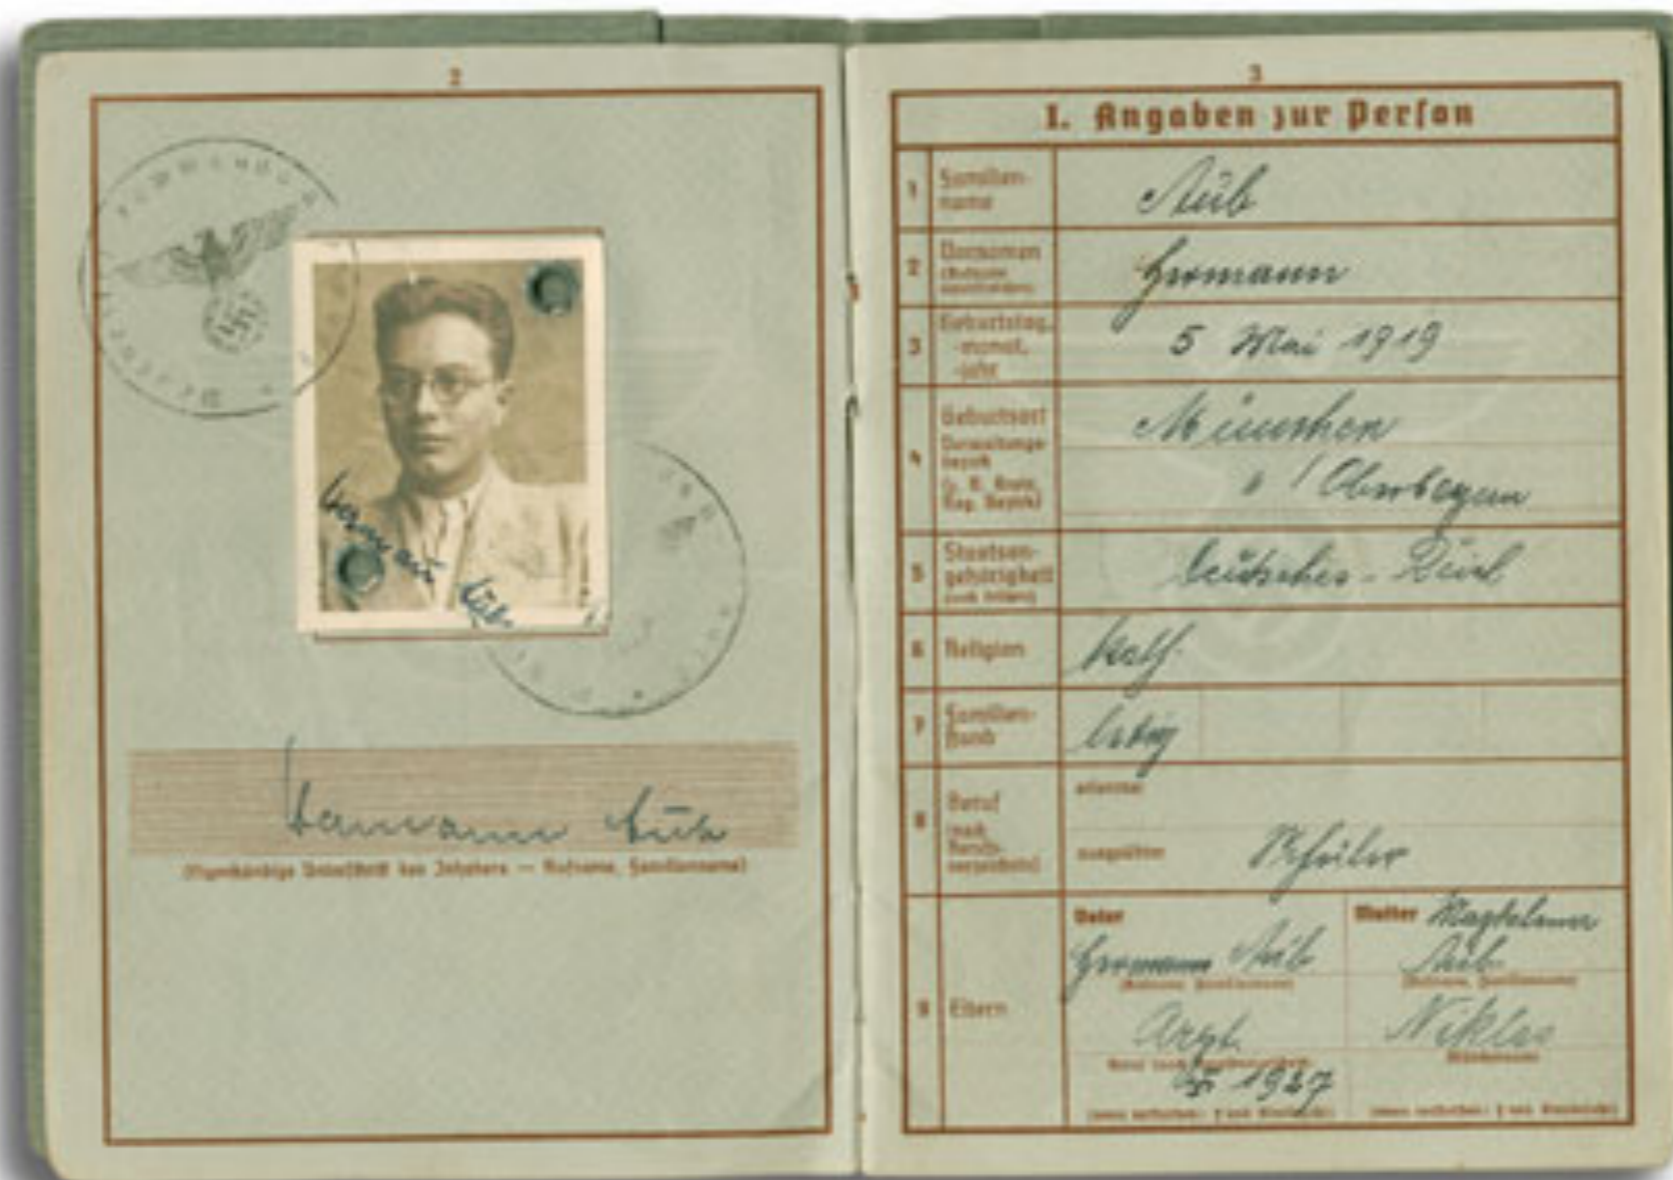 2
Hermann Aub
Hermann Aub
(Eigenhändige Unterschrift des Inhabers — Rufname, Familienname)
3
I. Angaben zur Person
1 Familien-
name
Aub
2 Vornamen
(Rufname
unterstreichen)
Hermann
3 Geburtstag,
-monat,
-jahr
5 Mai 1919
4 Geburtsort
Verwaltungs-
bezirk
(z. B. Kreis,
Reg. Bezirk)
München
Oberbayern
5 Staatsan-
gehörigkeit
(auch frühere)
Deutsches-Reich
6 Religion
kath.
7 Familien-
stand
ledig
8 Beruf
(nach
Berufs-
verzeichnis)
erlernter
ausgeübter
Schüler
9 Eltern
Vater
Hermann Aub
(Rufname, Familienname)
Arzt
1927
(wenn verstorben: † und Sterbejahr)
Mutter Magdalena
Aub
(Rufname, Familienname)
Niklas
(Mädchenname)
(wenn verstorben: † und Sterbejahr)